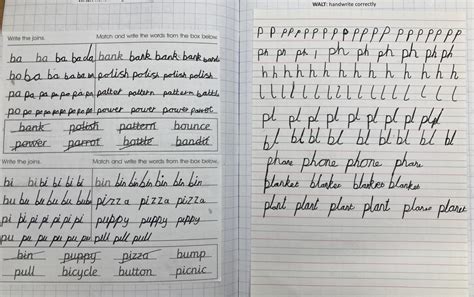 Write the joins. Match and write the words from the box below.
ba ba ba bada bank bank bank bank bank
bo ba ba ba ba ba polish polish polish polish
pa pa pa pa pa pa pa pattern pattern battle
po po po po po po po power power power parrot
bank polish pattern bounce
power parrot battle bandit
Write the joins. Match and write the words from the box below.
bi bi bi bi bi bi bin bin bin bin bin bin
bu bu bu bu bu bu pizza pizza pizza
pi pi pi pi pi pi puppy puppy puppy
pu pu pu pu pu pu pull pull pull
bin puppy pizza bump
pull bicycle button picnic
WALT: handwrite correctly
p p p p p p p p p p p p p p p
ph ph ph ph ph ph ph ph
h h h h h h h h h h h h
l l l l l l l l l l l l l
pl pl pl pl pl pl pl pl
bl bl bl bl bl bl bl bl
phone phone phone phone
blanket blanket blanket blanket
plant plant plant plant planet planet